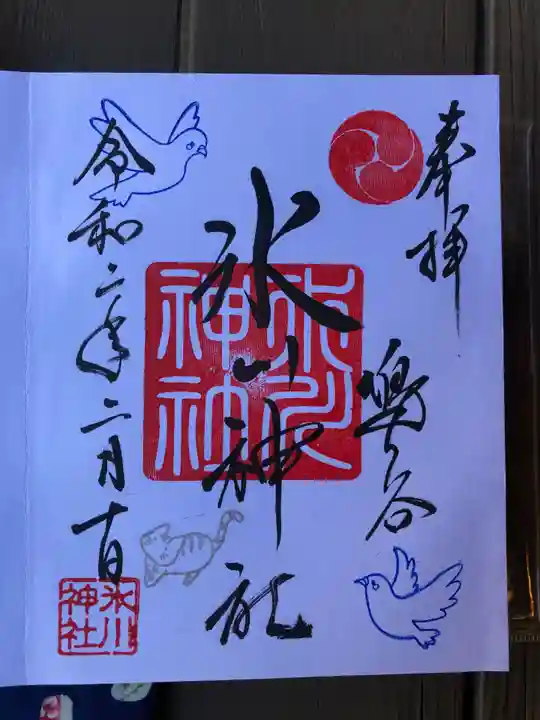 奉拝
鳩ヶ谷
氷川神社
氷川神社
令和二年二月十一日
氷川神社